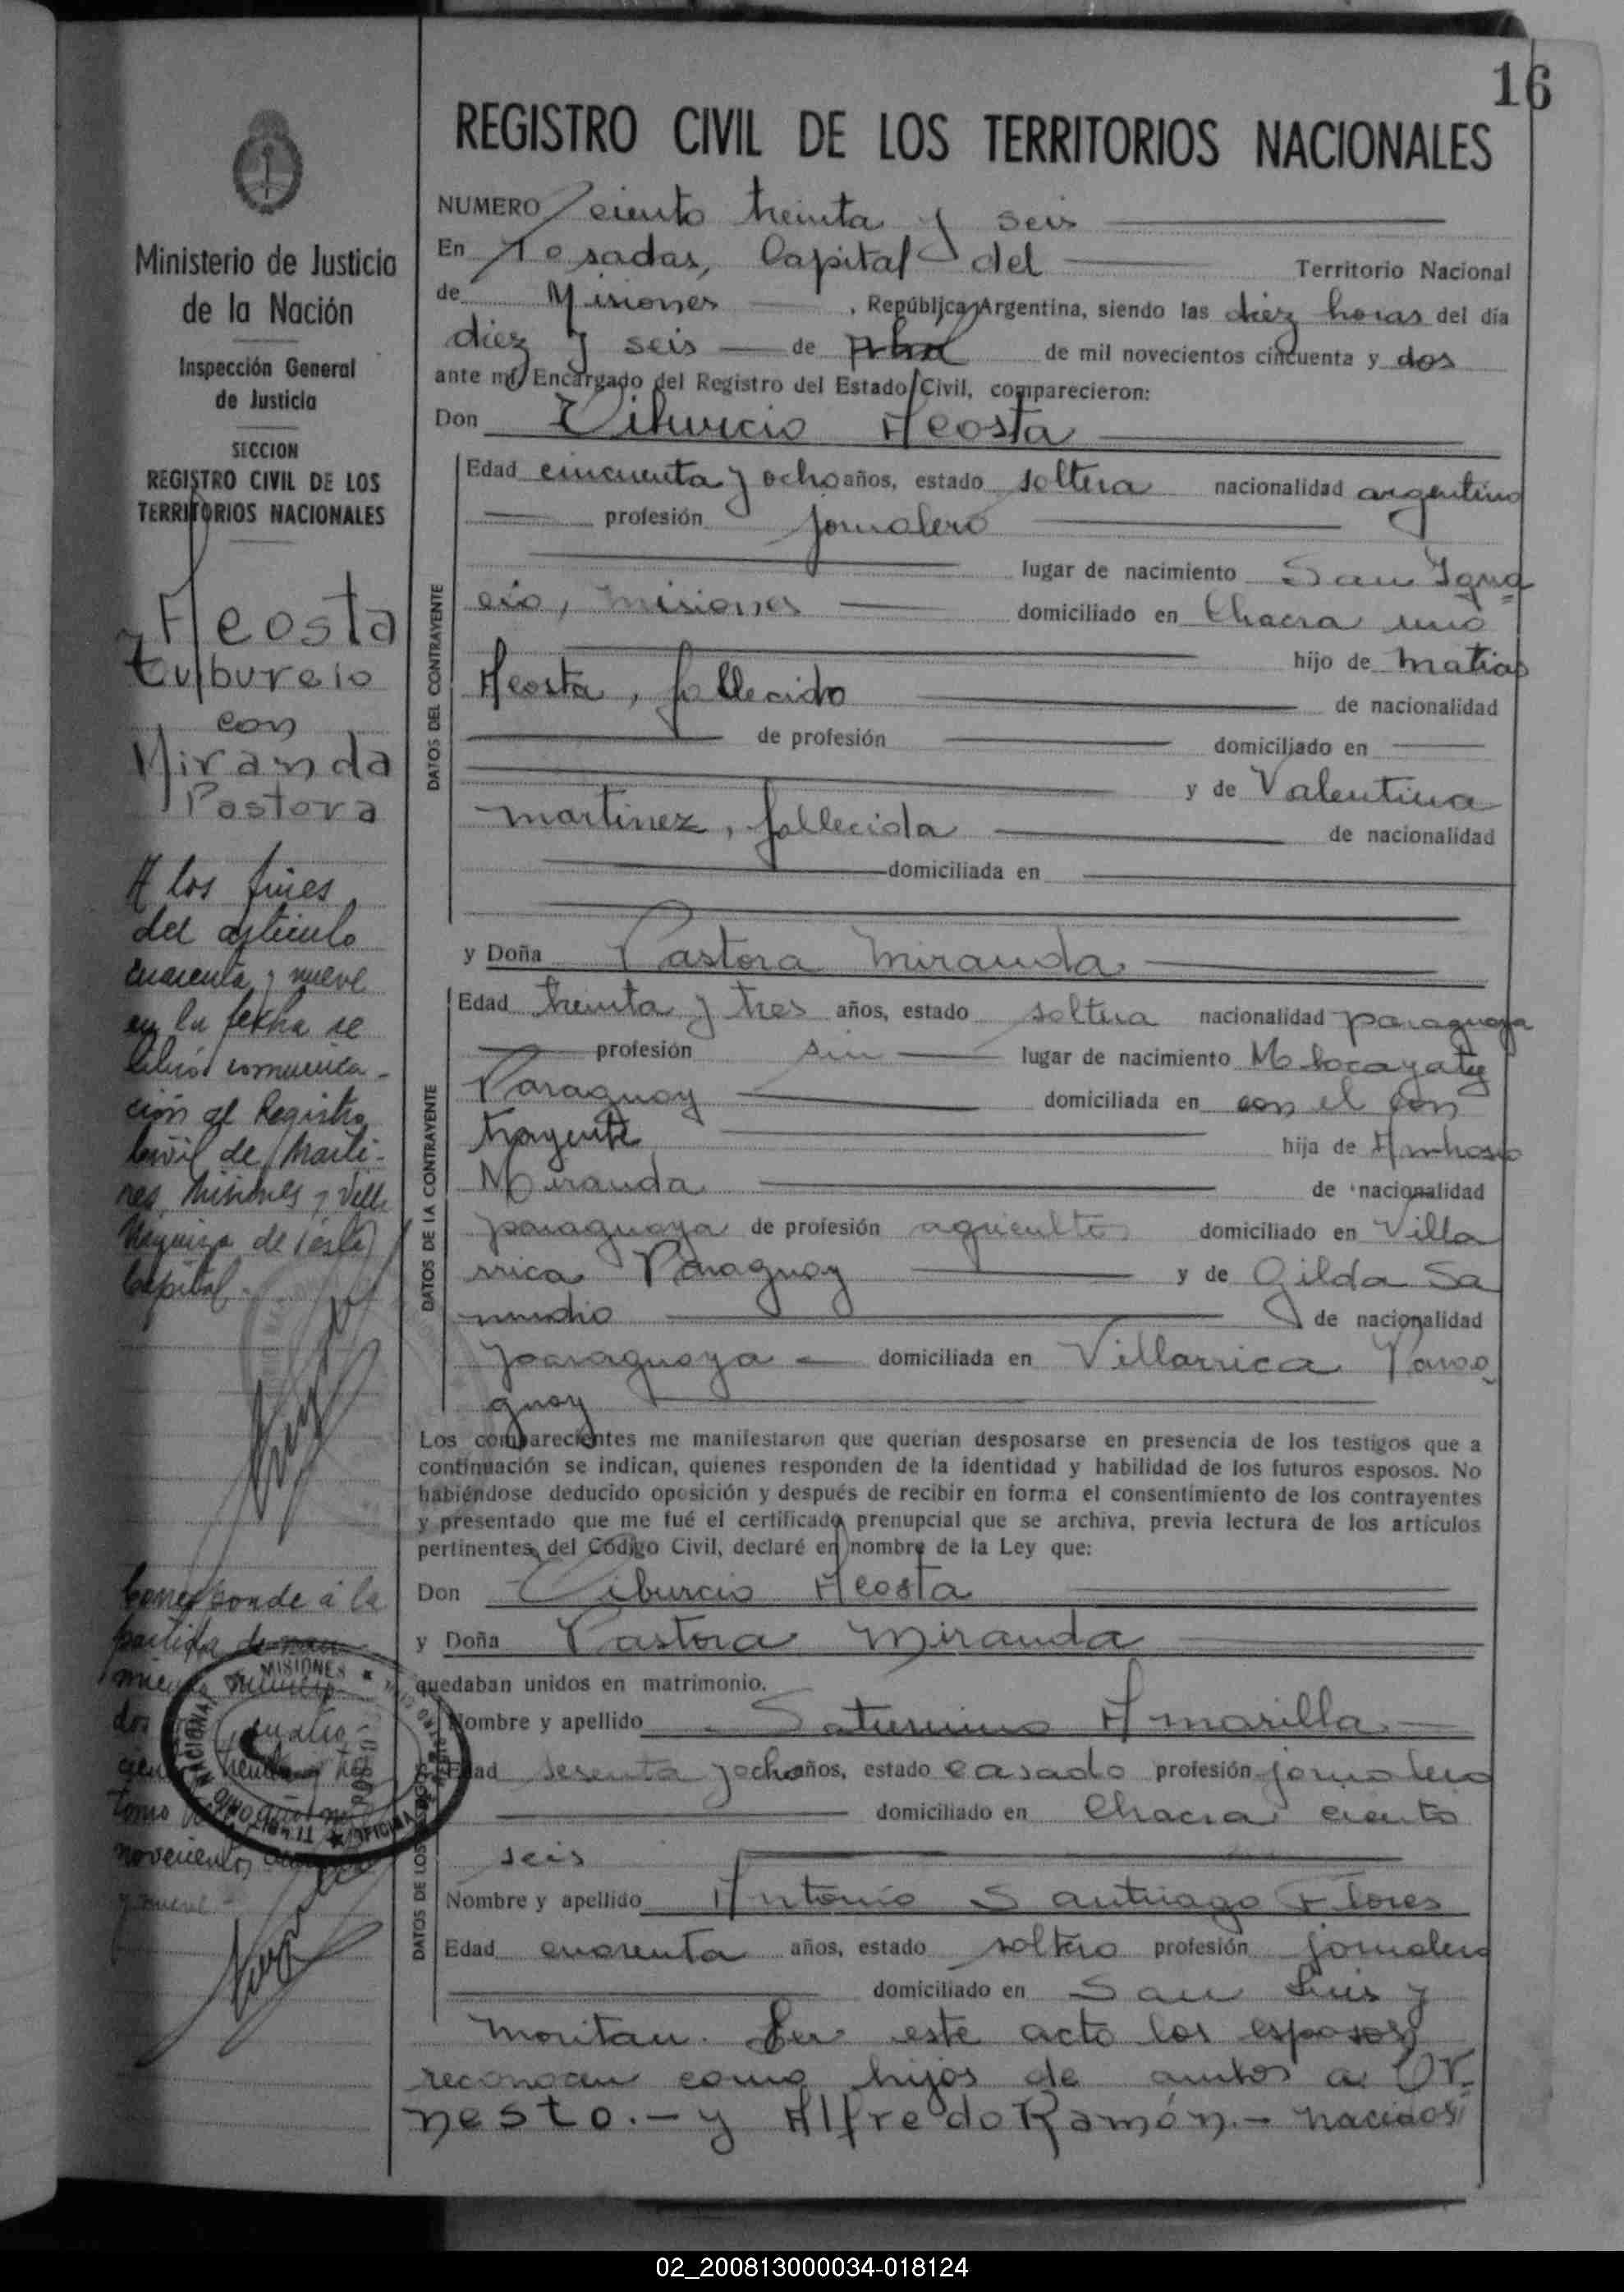 16
REGISTRO CIVIL DE LOS TERRITORIOS NACIONALES
Ministerio de Justicia
de la Nación
Inspección General
de Justicia
SECCION
REGISTRO CIVIL DE LOS
TERRITORIOS NACIONALES
Acosta
Tulburcio
con
Miranda
Pastora
A los fines
del artículo
cuarenta y nueve
en la fecha se
libró comunica-
ción al Registro
Civil de Márti-
res, Misiones y Villa
de esta
Capital.
Corresponde á la
partida de
tomo
novecientos
y nueve -
NUMERO ciento treinta y seis
En Posadas, Capital del Territorio Nacional
de Misiones, República Argentina, siendo las diez horas del día
diez y seis de Abril de mil novecientos cincuenta y dos
ante mí, Encargado del Registro del Estado Civil, comparecieron:
Don Tiburcio Acosta
DATOS DEL CONTRAYENTE
Edad cincuenta y ocho años, estado soltera nacionalidad argentino
profesión jornalero
lugar de nacimiento San Igna
cio, Misiones domiciliado en Chacra uno
hijo de Matias
Acosta, fallecido de nacionalidad
de profesión domiciliado en
y de Valentina
Martinez, fallecida de nacionalidad
domiciliada en
y Doña Pastora Miranda
DATOS DE LA CONTRAYENTE
Edad treinta y tres años, estado soltera nacionalidad paraguaya
profesión sin lugar de nacimiento Mbocayaty
Paraguay domiciliada en con el con
trayente hija de Ambrosio
Miranda de nacionalidad
paraguaya de profesión agricultor domiciliado en Villa
rrica Paraguay y de Gilda Sa
mudio de nacionalidad
paraguaya domiciliada en Villarrica Para
guay
Los comparecientes me manifestaron que querían desposarse en presencia de los testigos que a
continuación se indican, quienes responden de la identidad y habilidad de los futuros esposos. No
habiéndose deducido oposición y después de recibir en forma el consentimiento de los contrayentes
y presentado que me fué el certificado prenupcial que se archiva, previa lectura de los artículos
pertinentes del Código Civil, declaré en nombre de la Ley que:
Don Tiburcio Acosta
y Doña Pastora Miranda
quedaban unidos en matrimonio.
Nombre y apellido Saturnino Amarilla
Edad sesenta y ocho años, estado casado profesión jornalero
domiciliado en Chacra ciento
seis
Nombre y apellido Antonio Santiago Flores
Edad cuarenta años, estado soltero profesión jornalero
domiciliado en San Luis y
Moritan. En este acto los esposos
reconocen como hijos de ambos a Or-
nesto.- y Alfredo Ramón.- nacidos
MISIONES
02_200813000034-018124